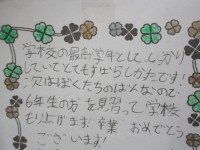 学校の最高学年として、しっかり
していてとてもすばらしかったです!
次はぼくたちのばんなので
6年生の方を見習って学校
もり上げます。卒業 おめでとう
ございます!